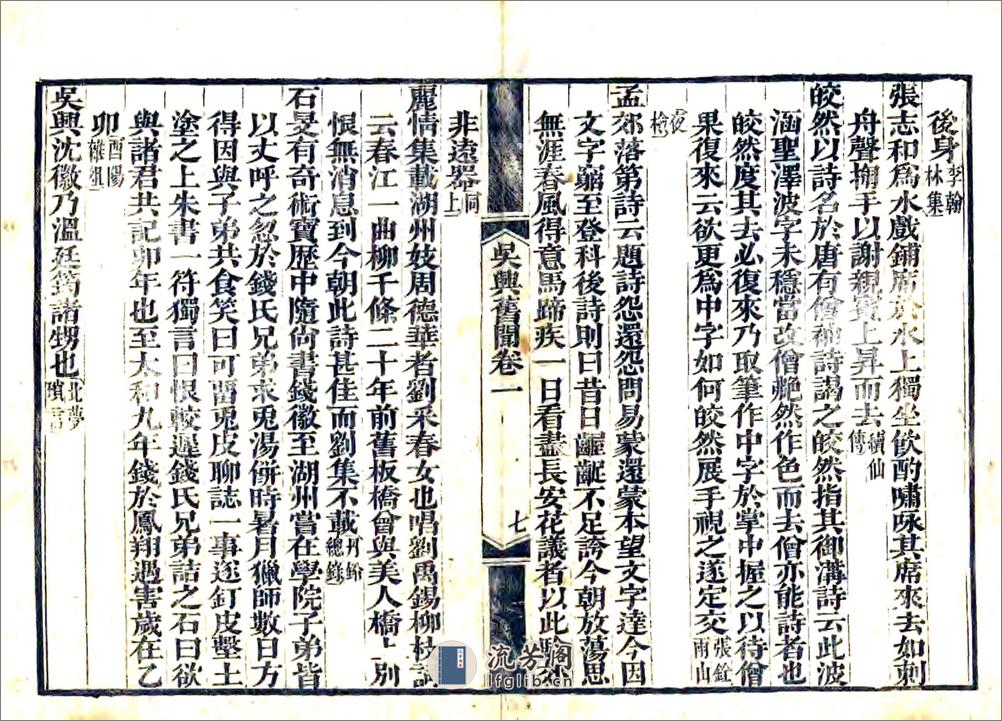 後身李翰林集
張志和爲水戲鋪席於水上獨坐飲酌嘯咏其席來去如刺
舟聲揮手以謝親賓上昇而去續仙傳
皎然以詩名於唐有僧袖詩謁之皎然指其御溝詩云此波
涵聖澤波字未穩當改僧艴然作色而去僧亦能詩者也
皎然度其去必復來乃取筆作中字於掌中握之以待僧
果復來云欲更爲中字如何皎然展手視之遂定交張銓雨山
夜
孟郊落第詩云題詩怨還怨問易蒙還蒙本望文字達今因
文字窮至登科後詩則曰昔日齷齪不足誇今朝放蕩思
無涯春風得意馬蹄疾一日看盡長安花議者以此
非遠器同上
麗情集載湖州妓周德華者劉采春女也唱劉禹錫柳枝詞
云春江一曲柳千條二十年前舊板橋曾與美人橋上別
恨無消息到今朝此詩甚佳而劉集不載丹鉛總錄
石旻有奇術寶歷中隨尚書錢徽至湖州嘗在學院子弟皆
以丈呼之忽於錢氏兄弟求兎湯餅時暑月獵師數日方
得因與子弟共食笑曰可畱兎皮聊誌一事遂釘皮墼土
塗之上朱書一符獨言曰恨較遲錢氏兄弟詰之石曰欲
與諸君共記卯年也至大和九年錢於鳳翔遇害歲在乙
卯酉陽雜俎
吳興沈徽乃溫廷筠諸甥也北夢瑣言
吳興舊聞卷一
七
流芳閣
lfglib.cn